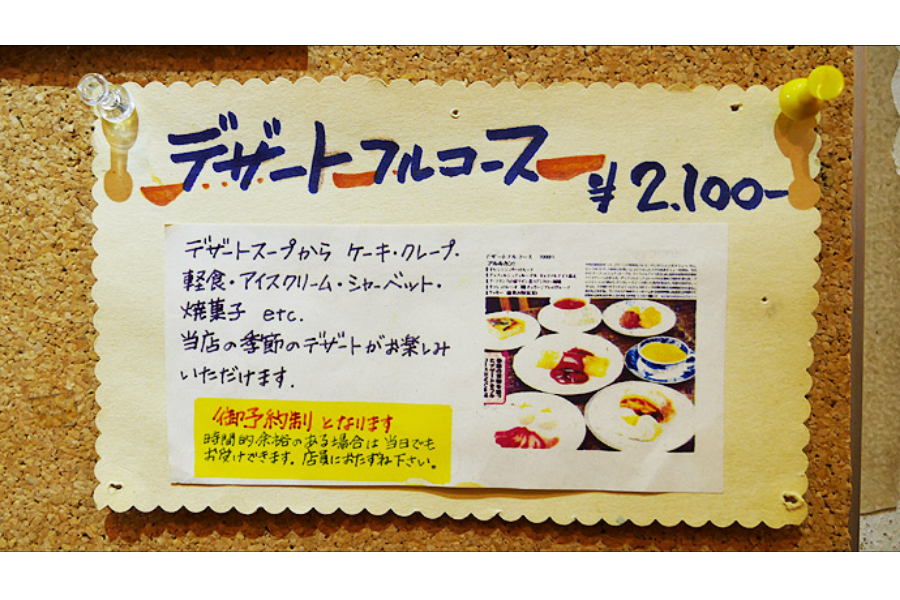 デザートフルコース
¥2.100-
デザートスープから ケーキ・クレープ・
軽食・アイスクリーム・シャーベット・
焼菓子 etc.
当店の季節のデザートがお楽しみ
いただけます.
御予約制となります
時間的余裕のある場合は当日でも
お受けできます。店員におたずね下さい。